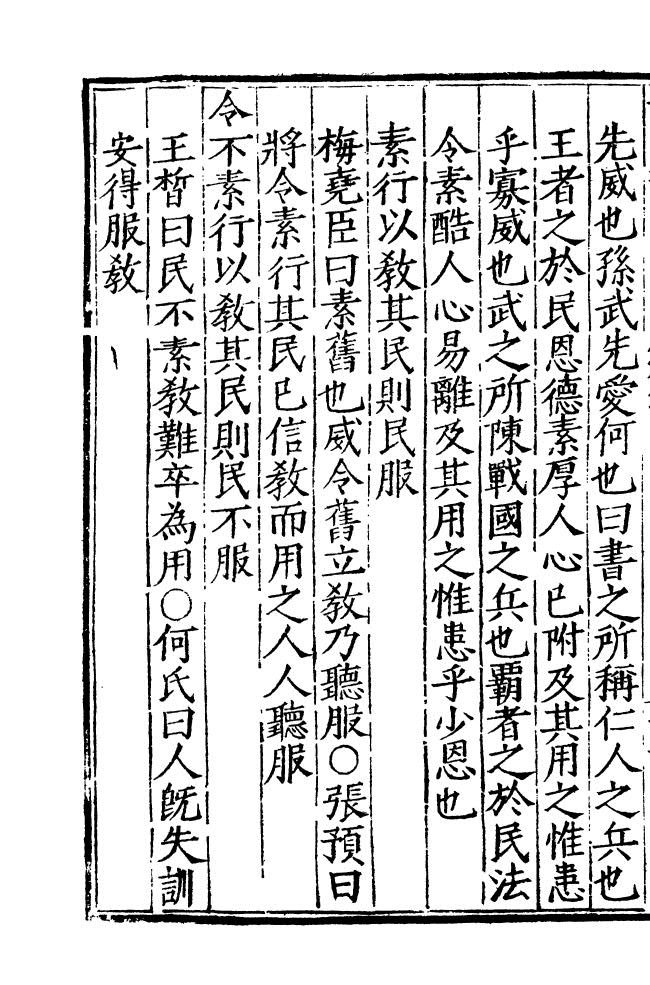 先威也孫武先愛何也曰書之所稱仁人之兵也
王者之於民恩德素厚人心已附及其用之惟患
乎寡威也武之所陳戰國之兵也霸者之於民法
令素酷人心易離及其用之惟患乎少恩也
素行以敎其民則民服
梅堯臣曰素舊也威令舊立敎乃聽服○張預曰
將令素行其民已信敎而用之人人聽服
令不素行以敎其民則民不服
王晳曰民不素敎難卒為用○何氏曰人旣失訓
安得服敎